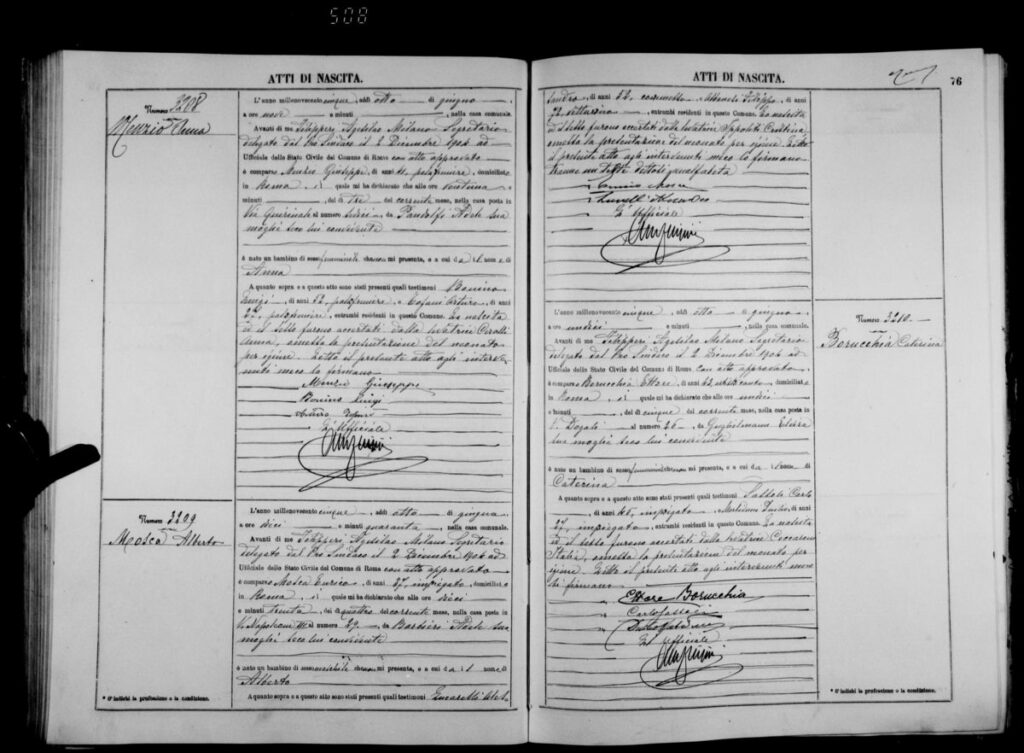 508
ATTI DI NASCITA.
Numero 3208
Menzio Anna
L'anno millenovecento cinque, addì otto di giugno,
a ore nove e minuti, nella casa comunale.
Avanti di me Filipperi Agesilao Milano Segretario
delegato dal Pro Sindaco il 2 Dicembre 1904 ad
Ufficiale dello Stato Civile del Comune di Roma con atto approvato
è comparso Menzio Giuseppe, di anni, domiciliato
in Roma, il quale mi ha dichiarato che alle ore ventuna e
minuti, del dì tre del corrente mese, nella casa posta in
Via Quirinale al numero, da Pandolfo Adele sua
moglie seco lui convivente
è nato un bambino di sesso femminile che non mi presenta, e a cui dà il nome di
Anna
A quanto sopra e a questo atto sono stati presenti quali testimoni Bonino
Luigi, di anni 52, e Arturo, di anni
entrambi residenti in questo Comune. La nascita
ed il sesso furono accertati dalla levatrice Ceralli
Anna, omessa la presentazione del neonato
per igiene. Letto il presente atto agli interve-
nuti meco lo firmano
Menzio Giuseppe
Bonino Luigi
Arturo
L'Ufficiale
Numero 3209
Mosca Alberto
L'anno millenovecento cinque, addì otto di giugno,
a ore dieci e minuti quaranta, nella casa comunale.
Avanti di me Filipperi Agesilao Milano Segretario
delegato dal Pro Sindaco il 2 Dicembre 1904 ad
Ufficiale dello Stato Civile del Comune di Roma con atto approvato
è comparso Mosca Enrico, di anni 37, impiegato, domiciliato
in Roma, il quale mi ha dichiarato che alle ore dieci
e minuti trenta, del dì quattro del corrente mese, nella casa posta in
V. Napoleone III al numero 29, da Barbieri Adele sua
moglie seco lui convivente
è nato un bambino di sesso maschile che non mi presenta, e a cui dà il nome di
Alberto
A quanto sopra e a questo atto sono stati presenti quali testimoni
* O indichi la professione o la condizione.
ATTI DI NASCITA.
76
sandro, di anni 32, e Filippo, di anni
entrambi residenti in questo Comune. La nascita
ed il sesso furono accertati dalla levatrice Ippoliti Cristina,
omessa la presentazione del neonato per igiene. Letto
il presente atto agli intervenuti meco lo firmano
tranne un teste dettosi analfabeta
Enrico Mosca
L'Ufficiale
Numero 3210
Borucchia Caterina
L'anno millenovecento cinque, addì otto di giugno,
a ore undici e minuti, nella casa comunale.
Avanti di me Filipperi Agesilao Milano Segretario
delegato dal Pro Sindaco il 2 Dicembre 1904 ad
Ufficiale dello Stato Civile del Comune di Roma con atto approvato
è comparso Borucchia Ettore, di anni 42, domiciliato
in Roma, il quale mi ha dichiarato che alle ore undici
e minuti, del dì cinque del corrente mese, nella casa posta in
V. Dogali al numero 26, da Guglielmann Elvira
sua moglie seco lui convivente
è nato un bambino di sesso femminile che non mi presenta, e a cui dà il nome di
Caterina
A quanto sopra e a questo atto sono stati presenti quali testimoni Carlo
di anni, impiegato, e Duilio, di anni
27, impiegato, entrambi residenti in questo Comune. La nascita
ed il sesso furono accertati dalla levatrice Ceccaroni
Italia, omessa la presentazione del neonato per
igiene. Letto il presente atto agli intervenuti meco
lo firmano
Ettore Borucchia
Carlo
L'Ufficiale
* O indichi la professione o la condizione.